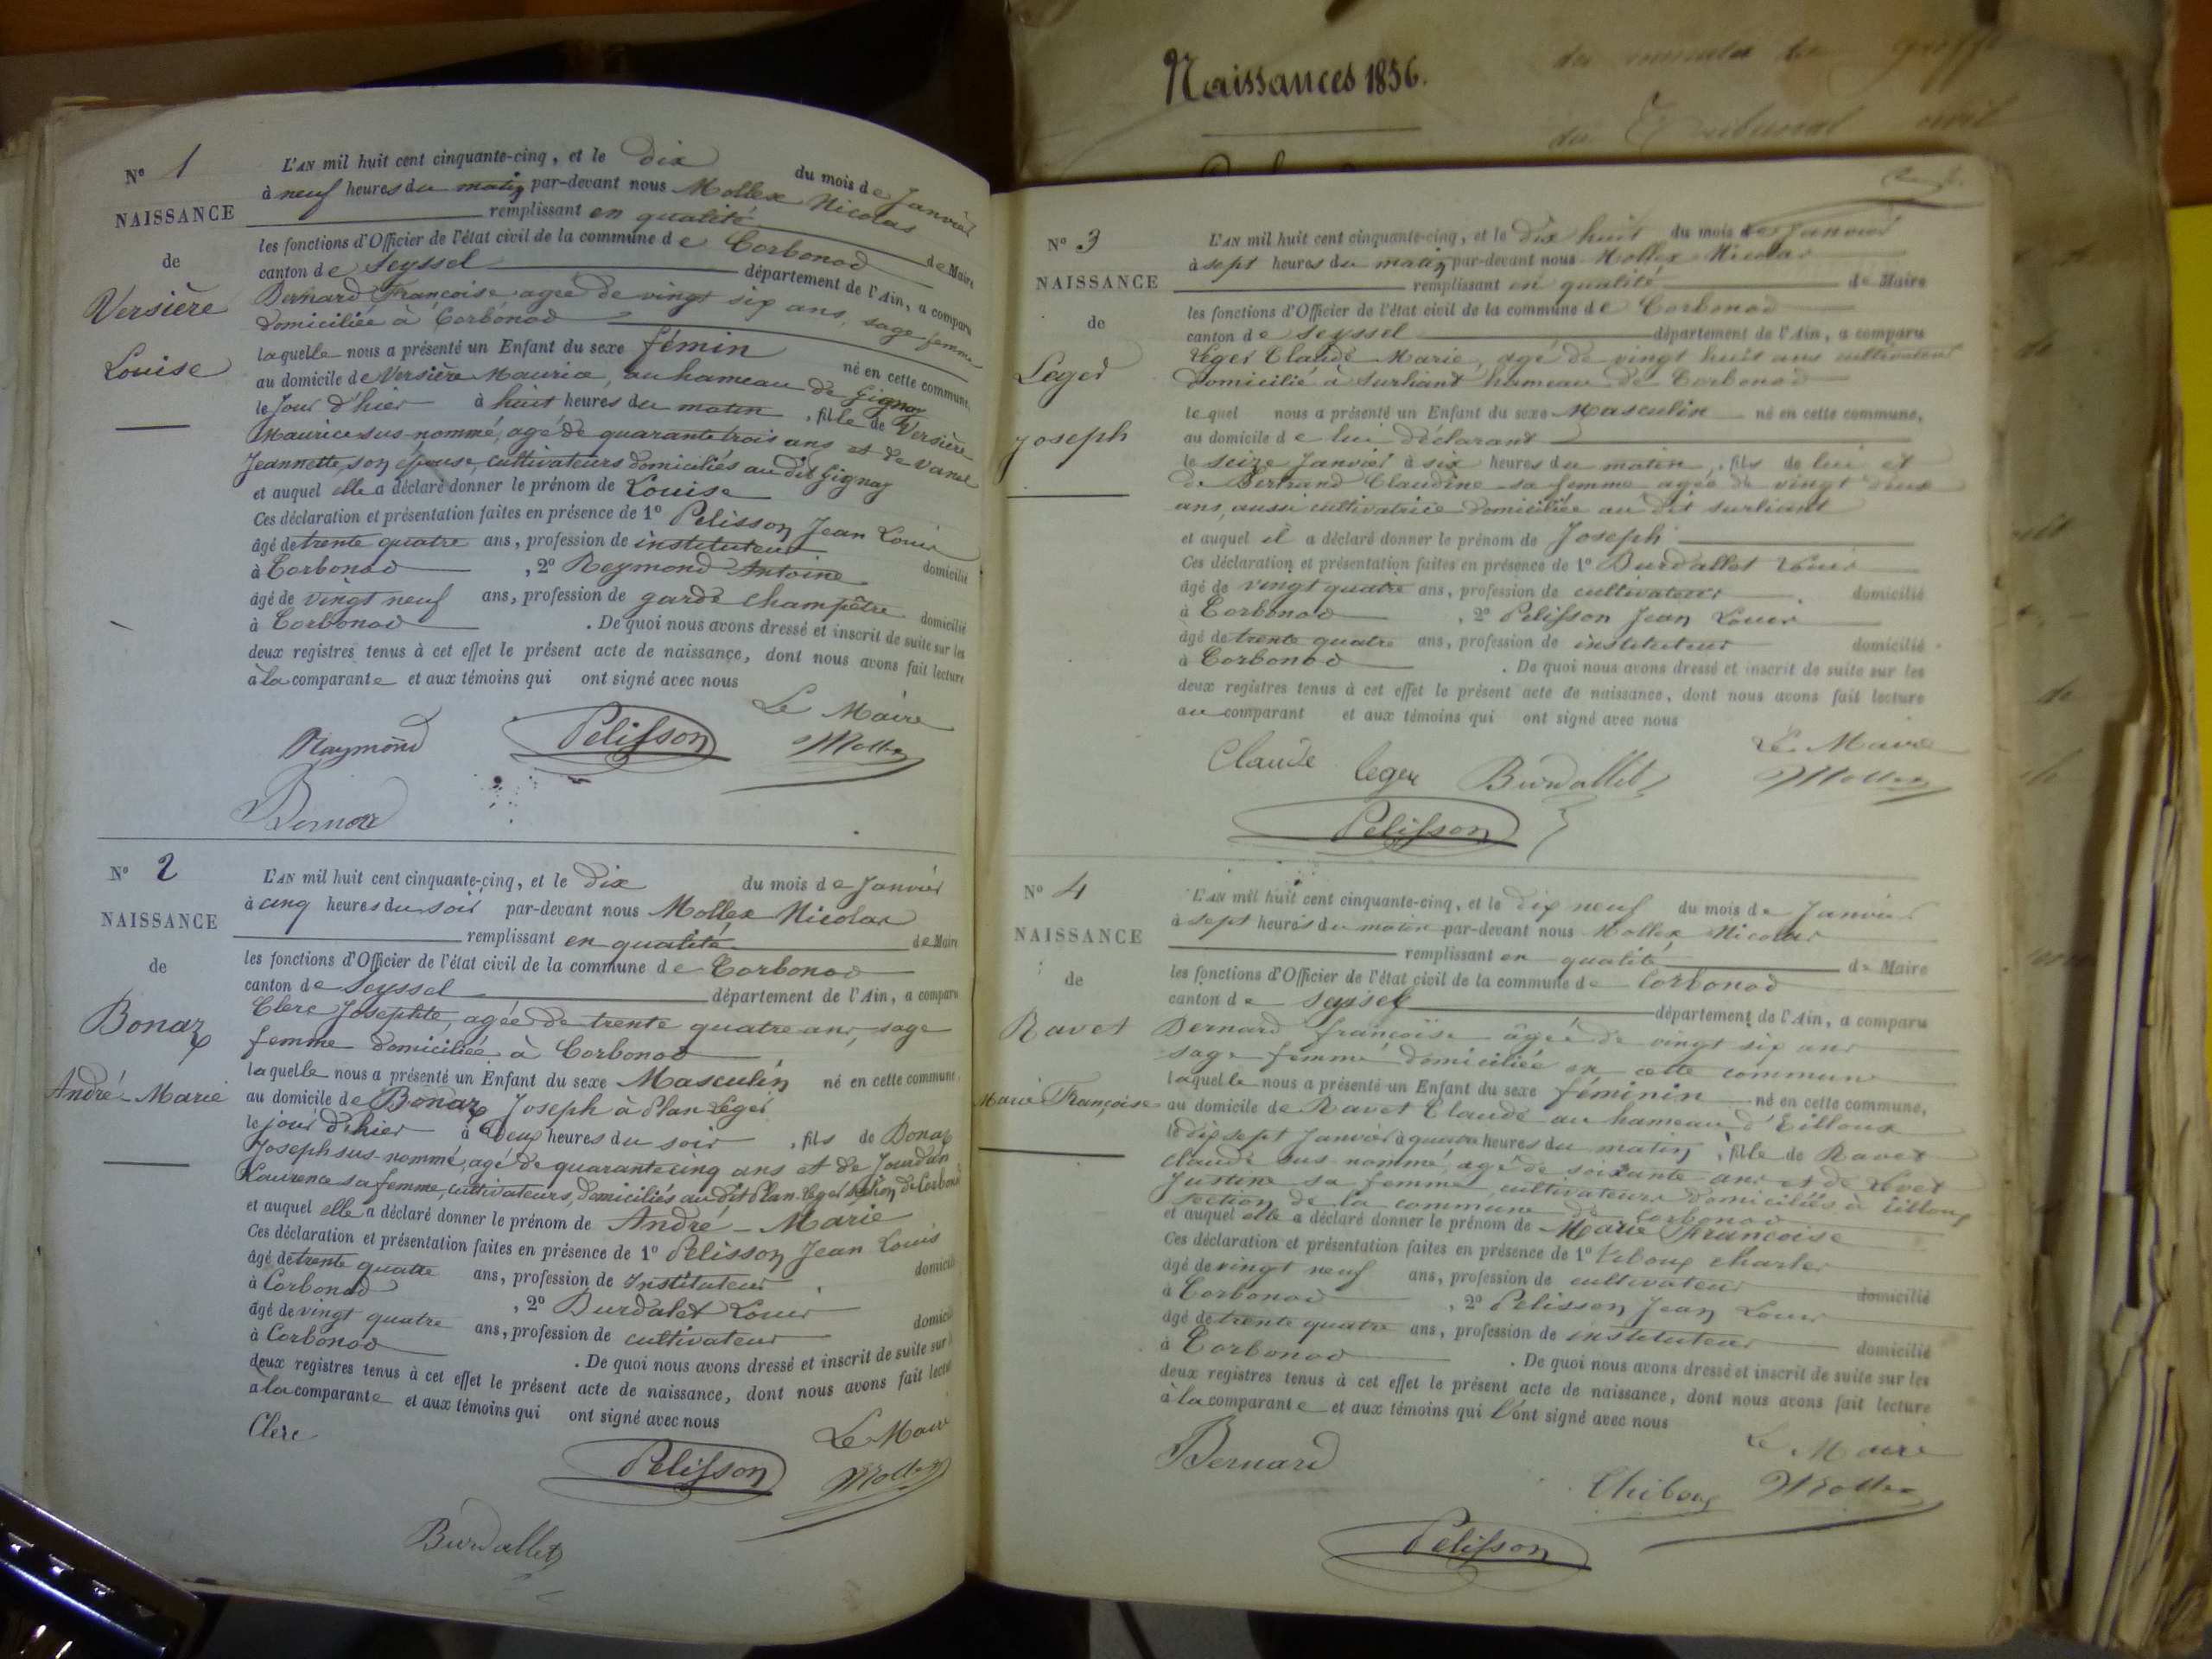 Naissances 1856.
Tribunal civil
N° 1
NAISSANCE
de
Versière
Louise
L'AN mil huit cent cinquante-cinq, et le dix du mois de Janvier
à neuf heures du matin par-devant nous Mollex Nicolas
remplissant en qualité de Maire
les fonctions d'Officier de l'état civil de la commune de Corbonod
canton de Seyssel département de l'Ain, a comparu
Bernard Françoise agée de vingt six ans, sage-femme
domiciliée à Corbonod
laquelle nous a présenté un Enfant du sexe fémin né en cette commune,
au domicile de Versière Maurice, au hameau de Gignay
le jour d'hier à huit heures du matin, fille de Versière
Maurice sus-nommé, agé de quarante trois ans et de Vanel
Jeannette, son épouse, cultivateurs domiciliés au dit Gignay
et auquel elle a déclaré donner le prénom de Louise
Ces déclaration et présentation faites en présence de 1° Pelisson Jean Louis
âgé de trente quatre ans, profession de instituteur domicilié
à Corbonod, 2° Reymond Antoine
âgé de vingt neuf ans, profession de garde champêtre domicilié
à Corbonod. De quoi nous avons dressé et inscrit de suite sur les
deux registres tenus à cet effet le présent acte de naissance, dont nous avons fait lecture
à la comparante et aux témoins qui ont signé avec nous
Le Maire
Raymond Pelisson Mollex
Bernard
N° 2
NAISSANCE
de
Bonaz
André-Marie
L'AN mil huit cent cinquante-cinq, et le dix du mois de Janvier
à cinq heures du soir par-devant nous Mollex Nicolas
remplissant en qualité de Maire
les fonctions d'Officier de l'état civil de la commune de Corbonod
canton de Seyssel département de l'Ain, a comparu
Clerc Josephte, agée de trente quatre ans, sage
femme domiciliée à Corbonod
laquelle nous a présenté un Enfant du sexe Masculin né en cette commune,
au domicile de Bonaz Joseph à Plan Léger
le jour d'hier à deux heures du soir, fils de Bonaz
Joseph sus-nommé, agé de quarante cinq ans et de Jourdan
Laurence sa femme, cultivateurs, domiciliés au dit Plan-Léger section de Corbonod
et auquel elle a déclaré donner le prénom de André-Marie
Ces déclaration et présentation faites en présence de 1° Pelisson Jean Louis
âgé de trente quatre ans, profession de Instituteur domicilié
à Corbonod, 2° Burdalet Louis
âgé de vingt quatre ans, profession de cultivateur domicilié
à Corbonod. De quoi nous avons dressé et inscrit de suite sur
deux registres tenus à cet effet le présent acte de naissance, dont nous avons fait lecture
à la comparante et aux témoins qui ont signé avec nous
Clerc Le Maire
Pelisson Mollex
Burdallet
N° 3
NAISSANCE
de
Leger
Joseph
L'AN mil huit cent cinquante-cinq, et le dix huit du mois de Janvier
à sept heures du matin par-devant nous Mollex Nicolas
remplissant en qualité de Maire
les fonctions d'Officier de l'état civil de la commune de Corbonod
canton de Seyssel département de l'Ain, a comparu
Léger Claude Marie, agé de vingt huit ans cultivateur
domicilié à Surliant hameau de Corbonod
lequel nous a présenté un Enfant du sexe Masculin né en cette commune,
au domicile de lui déclarant
le seize Janvier à six heures du matin, fils de lui et
de Bertrand Claudine sa femme agée de vingt deux
ans, aussi cultivatrice domiciliée au dit surliant
et auquel il a déclaré donner le prénom de Joseph
Ces déclaration et présentation faites en présence de 1° Burdallet Louis
âgé de vingt quatre ans, profession de cultivateur domicilié
à Corbonod, 2° Pelisson Jean Louis
âgé de trente quatre ans, profession de instituteur domicilié
à Corbonod. De quoi nous avons dressé et inscrit de suite sur les
deux registres tenus à cet effet le présent acte de naissance, dont nous avons fait lecture
au comparant et aux témoins qui ont signé avec nous
Le Maire
Claude leger Burdallet Mollex
Pelisson
N° 4
NAISSANCE
de
Ravet
Marie Françoise
L'AN mil huit cent cinquante-cinq, et le dix neuf du mois de Janvier
à sept heures du matin par-devant nous Mollex Nicolas
remplissant en qualité de Maire
les fonctions d'Officier de l'état civil de la commune de Corbonod
canton de Seyssel département de l'Ain, a comparu
Bernard françoise âgée de vingt six ans
sage femme domiciliée en cette commune
laquelle nous a présenté un Enfant du sexe féminin né en cette commune,
au domicile de Ravet Claude au hameau d'Eilloux
le dix sept Janvier à quatre heures du matin, fille de Ravet
Claude sus-nommé, agé de soixante ans et de
Justine sa femme, cultivateurs domiciliés à Eilloux
section de la commune de Corbonod
et auquel elle a déclaré donner le prénom de Marie Françoise
Ces déclaration et présentation faites en présence de 1° charles
âgé de vingt neuf ans, profession de cultivateur domicilié
à Corbonod, 2° Pelisson Jean Louis
âgé de trente quatre ans, profession de instituteur domicilié
à Corbonod. De quoi nous avons dressé et inscrit de suite sur les
deux registres tenus à cet effet le présent acte de naissance, dont nous avons fait lecture
à la comparante et aux témoins qui l'ont signé avec nous
Le Maire
Bernard Mollex
Pelisson